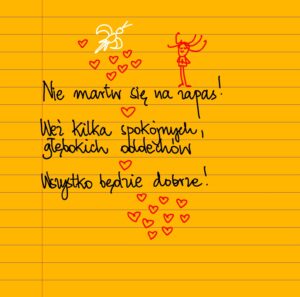 Nie martw się na zapas!
Weź kilka spokojnych,
głębokich oddechów
Wszystko będzie dobrze!